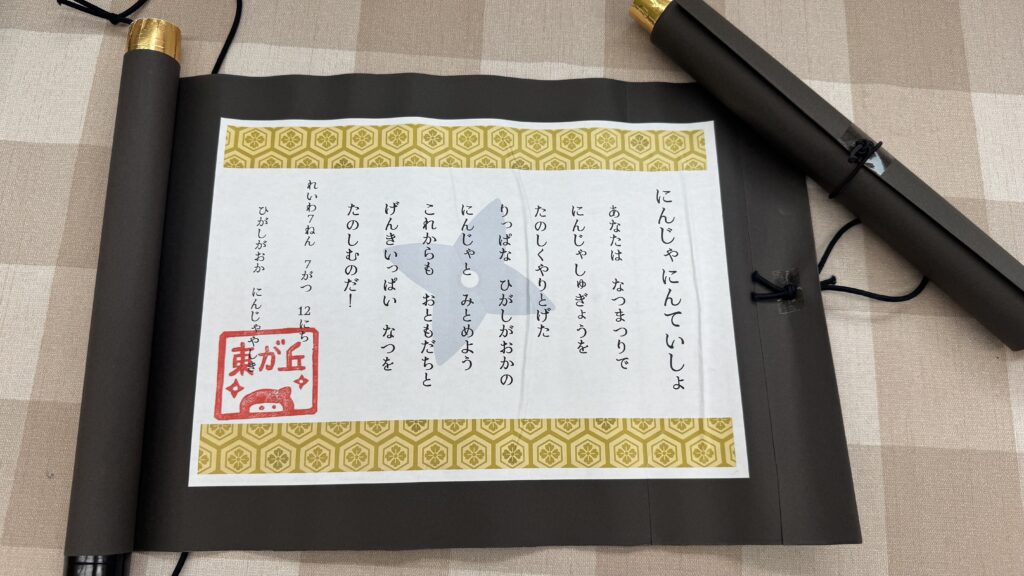 にんじゃにんていしょ
あなたは　なつまつりで
にんじゃしゅぎょうを
たのしくやりとげた
りっぱな　ひがしがおかの
にんじゃと　みとめよう
これからも　おともだちと
げんきいっぱい　なつを
たのしむのだ！
れいわ７ねん　７がつ　12にち
ひがしがおか　にんじゃやしき
東が丘